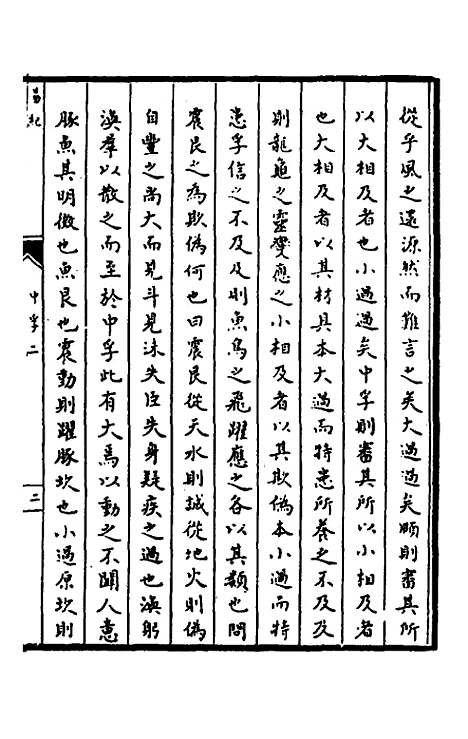 從乎風之還源然而難言之矣大過過矣頤則審其所
以大相及者也小過過矣中孚則審其所以小相及者
也大相及者以其材具本大過而特患所養之不及及
則龍龜之靈夔應之小相及者以其欺偽本小過而特
患孚信之不及及則魚鳥之飛躍應之各以其類也問
震艮之為欺偽何也曰震艮從天水則誠從地火則偽
自豐之尚大而見斗見沬失臣失身疑疾之過也渙躬
渙羣以散之而至於中孚此有大焉以動之不關人意
豚魚其明徵也魚艮也震動則躍豚坎也小過原坎則
易紀
中孚二
二